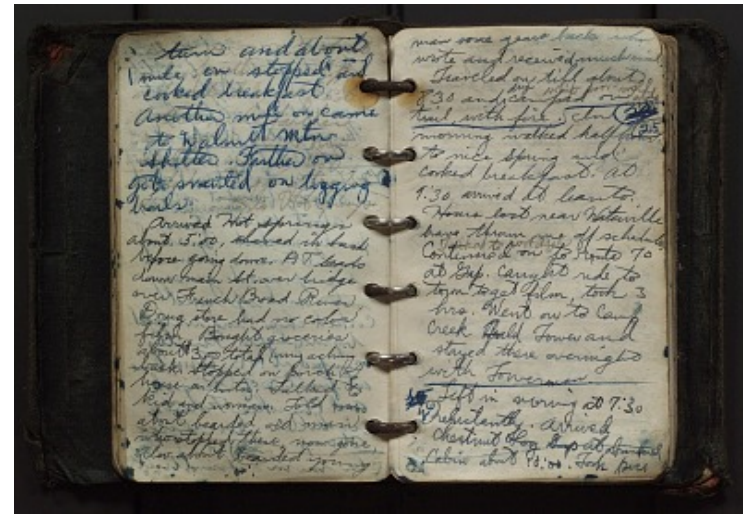 turn and about
1 mile on stopped and
cooked breakfast.
Another mile on came
to Walnut Mtn.
Shelter. Farther on
got snarled on logging
trails.
Arrived Hot Springs
about 5:00, shaved in
before going down. A.T. leads
down main St. over bridge
over French Broad River
Drug store had no color
film. Bought groceries
about
stopped on porch of
house Talked to
kid and woman. Told me
about bearded old man
who stopped there, now gone
also about bearded young
man some years back who
wrote and received much mail
Traveled on till about
8:30 and camped on
trail, with fire.
morning walked half
to nice spring and
cooked breakfast. At
9:30 arrived at leanto.
Hours lost near Waterville
have thrown me off schedule
Continued on to Route 70
at Gap. Caught ride to
town to get film, took 3
hrs. Went on to Camp
Creek Bald Tower and
stayed there overnight
with Towerman.
Left in morning at 7:30
reluctantly. Arrived
Chestnut Log at
Cabin about